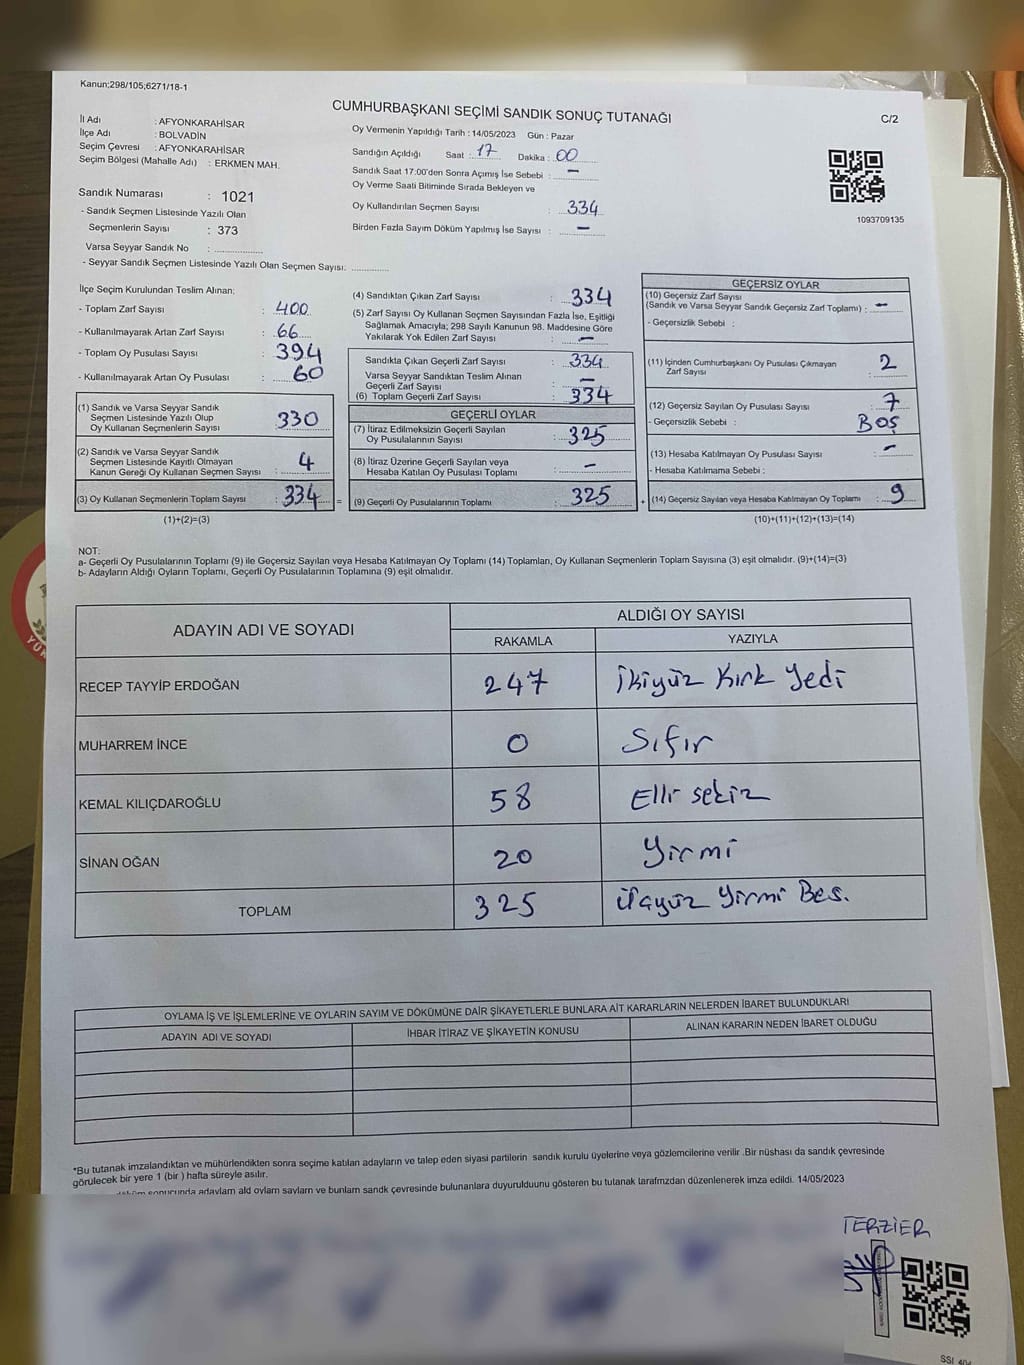 Kanun:298/105;6271/18-1
CUMHURBAŞKANI SEÇİMİ SANDIK SONUÇ TUTANAĞI
C/2
İl Adı : AFYONKARAHİSAR
İlçe Adı : BOLVADİN
Seçim Çevresi : AFYONKARAHİSAR
Seçim Bölgesi (Mahalle Adı) : ERKMEN MAH.
Sandık Numarası : 1021
- Sandık Seçmen Listesinde Yazılı Olan
Seçmenlerin Sayısı : 373
Varsa Seyyar Sandık No :
- Seyyar Sandık Seçmen Listesinde Yazılı Olan Seçmen Sayısı:
Oy Vermenin Yapıldığı Tarih : 14/05/2023 Gün : Pazar
Sandığın Açıldığı Saat : 17 Dakika : 00
Sandık Saat 17:00'den Sonra Açımış İse Sebebi : -
Oy Verme Saati Bitiminde Sırada Bekleyen ve
Oy Kullandırılan Seçmen Sayısı : 334
Birden Fazla Sayım Döküm Yapılmış İse Sayısı : -
1093709135
İlçe Seçim Kurulundan Teslim Alınan:
- Toplam Zarf Sayısı : 400
- Kullanılmayarak Artan Zarf Sayısı : 66
- Toplam Oy Pusulası Sayısı : 394
- Kullanılmayarak Artan Oy Pusulası : 60
(1) Sandık ve Varsa Seyyar Sandık
Seçmen Listesinde Yazılı Olup
Oy Kullanan Seçmenlerin Sayısı : 330
(2) Sandık ve Varsa Seyyar Sandık
Seçmen Listesinde Kayıtlı Olmayan
Kanun Gereği Oy Kullanan Seçmen Sayısı : 4
(3) Oy Kullanan Seçmenlerin Toplam Sayısı : 334 =
(1)+(2)=(3)
(4) Sandıktan Çıkan Zarf Sayısı : 334
(5) Zarf Sayısı Oy Kullanan Seçmen Sayısından Fazla İse, Eşitliği
Sağlamak Amacıyla; 298 Sayılı Kanunun 98. Maddesine Göre
Yakılarak Yok Edilen Zarf Sayısı : -
Sandıkta Çıkan Geçerli Zarf Sayısı : 334
Varsa Seyyar Sandıktan Teslim Alınan
Geçerli Zarf Sayısı : -
(6) Toplam Geçerli Zarf Sayısı : 334
GEÇERLİ OYLAR
(7) İtiraz Edilmeksizin Geçerli Sayılan
Oy Pusulalarının Sayısı : 325
(8) İtiraz Üzerine Geçerli Sayılan veya
Hesaba Katılan Oy Pusulası Toplamı : -
(9) Geçerli Oy Pusulalarının Toplamı : 325 +
GEÇERSİZ OYLAR
(10) Geçersiz Zarf Sayısı
(Sandık ve Varsa Seyyar Sandık Geçersiz Zarf Toplamı) : -
- Geçersizlik Sebebi :
(11) İçinden Cumhurbaşkanı Oy Pusulası Çıkmayan
Zarf Sayısı : 2
(12) Geçersiz Sayılan Oy Pusulası Sayısı : 7
- Geçersizlik Sebebi : BOŞ
(13) Hesaba Katılmayan Oy Pusulası Sayısı : -
- Hesaba Katılmama Sebebi :
(14) Geçersiz Sayılan veya Hesaba Katılmayan Oy Toplamı : 9
(10)+(11)+(12)+(13)=(14)
NOT:
a- Geçerli Oy Pusulalarının Toplamı (9) ile Geçersiz Sayılan veya Hesaba Katılmayan Oy Toplamı (14) Toplamları, Oy Kullanan Seçmenlerin Toplam Sayısına (3) eşit olmalıdır. (9)+(14)=(3)
b- Adayların Aldığı Oyların Toplamı, Geçerli Oy Pusulalarının Toplamına (9) eşit olmalıdır.
ADAYIN ADI VE SOYADI
ALDIĞI OY SAYISI
RAKAMLA YAZIYLA
RECEP TAYYİP ERDOĞAN 247 İkiyüz Kırk Yedi
MUHARREM İNCE 0 Sıfır
KEMAL KILIÇDAROĞLU 58 Elli sekiz
SİNAN OĞAN 20 Yirmi
TOPLAM 325 Üçyüz Yirmi Beş.
OYLAMA İŞ VE İŞLEMLERİNE VE OYLARIN SAYIM VE DÖKÜMÜNE DAİR ŞİKAYETLERLE BUNLARA AİT KARARLARIN NELERDEN İBARET BULUNDUKLARI
ADAYIN ADI VE SOYADI İHBAR İTİRAZ VE ŞİKAYETİN KONUSU ALINAN KARARIN NEDEN İBARET OLDUĞU
*Bu tutanak imzalandıktan ve mühürlendikten sonra seçime katılan adayların ve talep eden siyasi partilerin sandık kurulu üyelerine veya gözlemcilerine verilir .Bir nüshası da sandık çevresinde
görülecek bir yere 1 (bir ) hafta süreyle asılır.
sonucunda adayların ald oyların sayların ve bunların sandk çevresinde bulunanlara duyurulduunu gösteren bu tutanak tarafmzdan düzenlenerek imza edildi. 14/05/2023
TERZİER